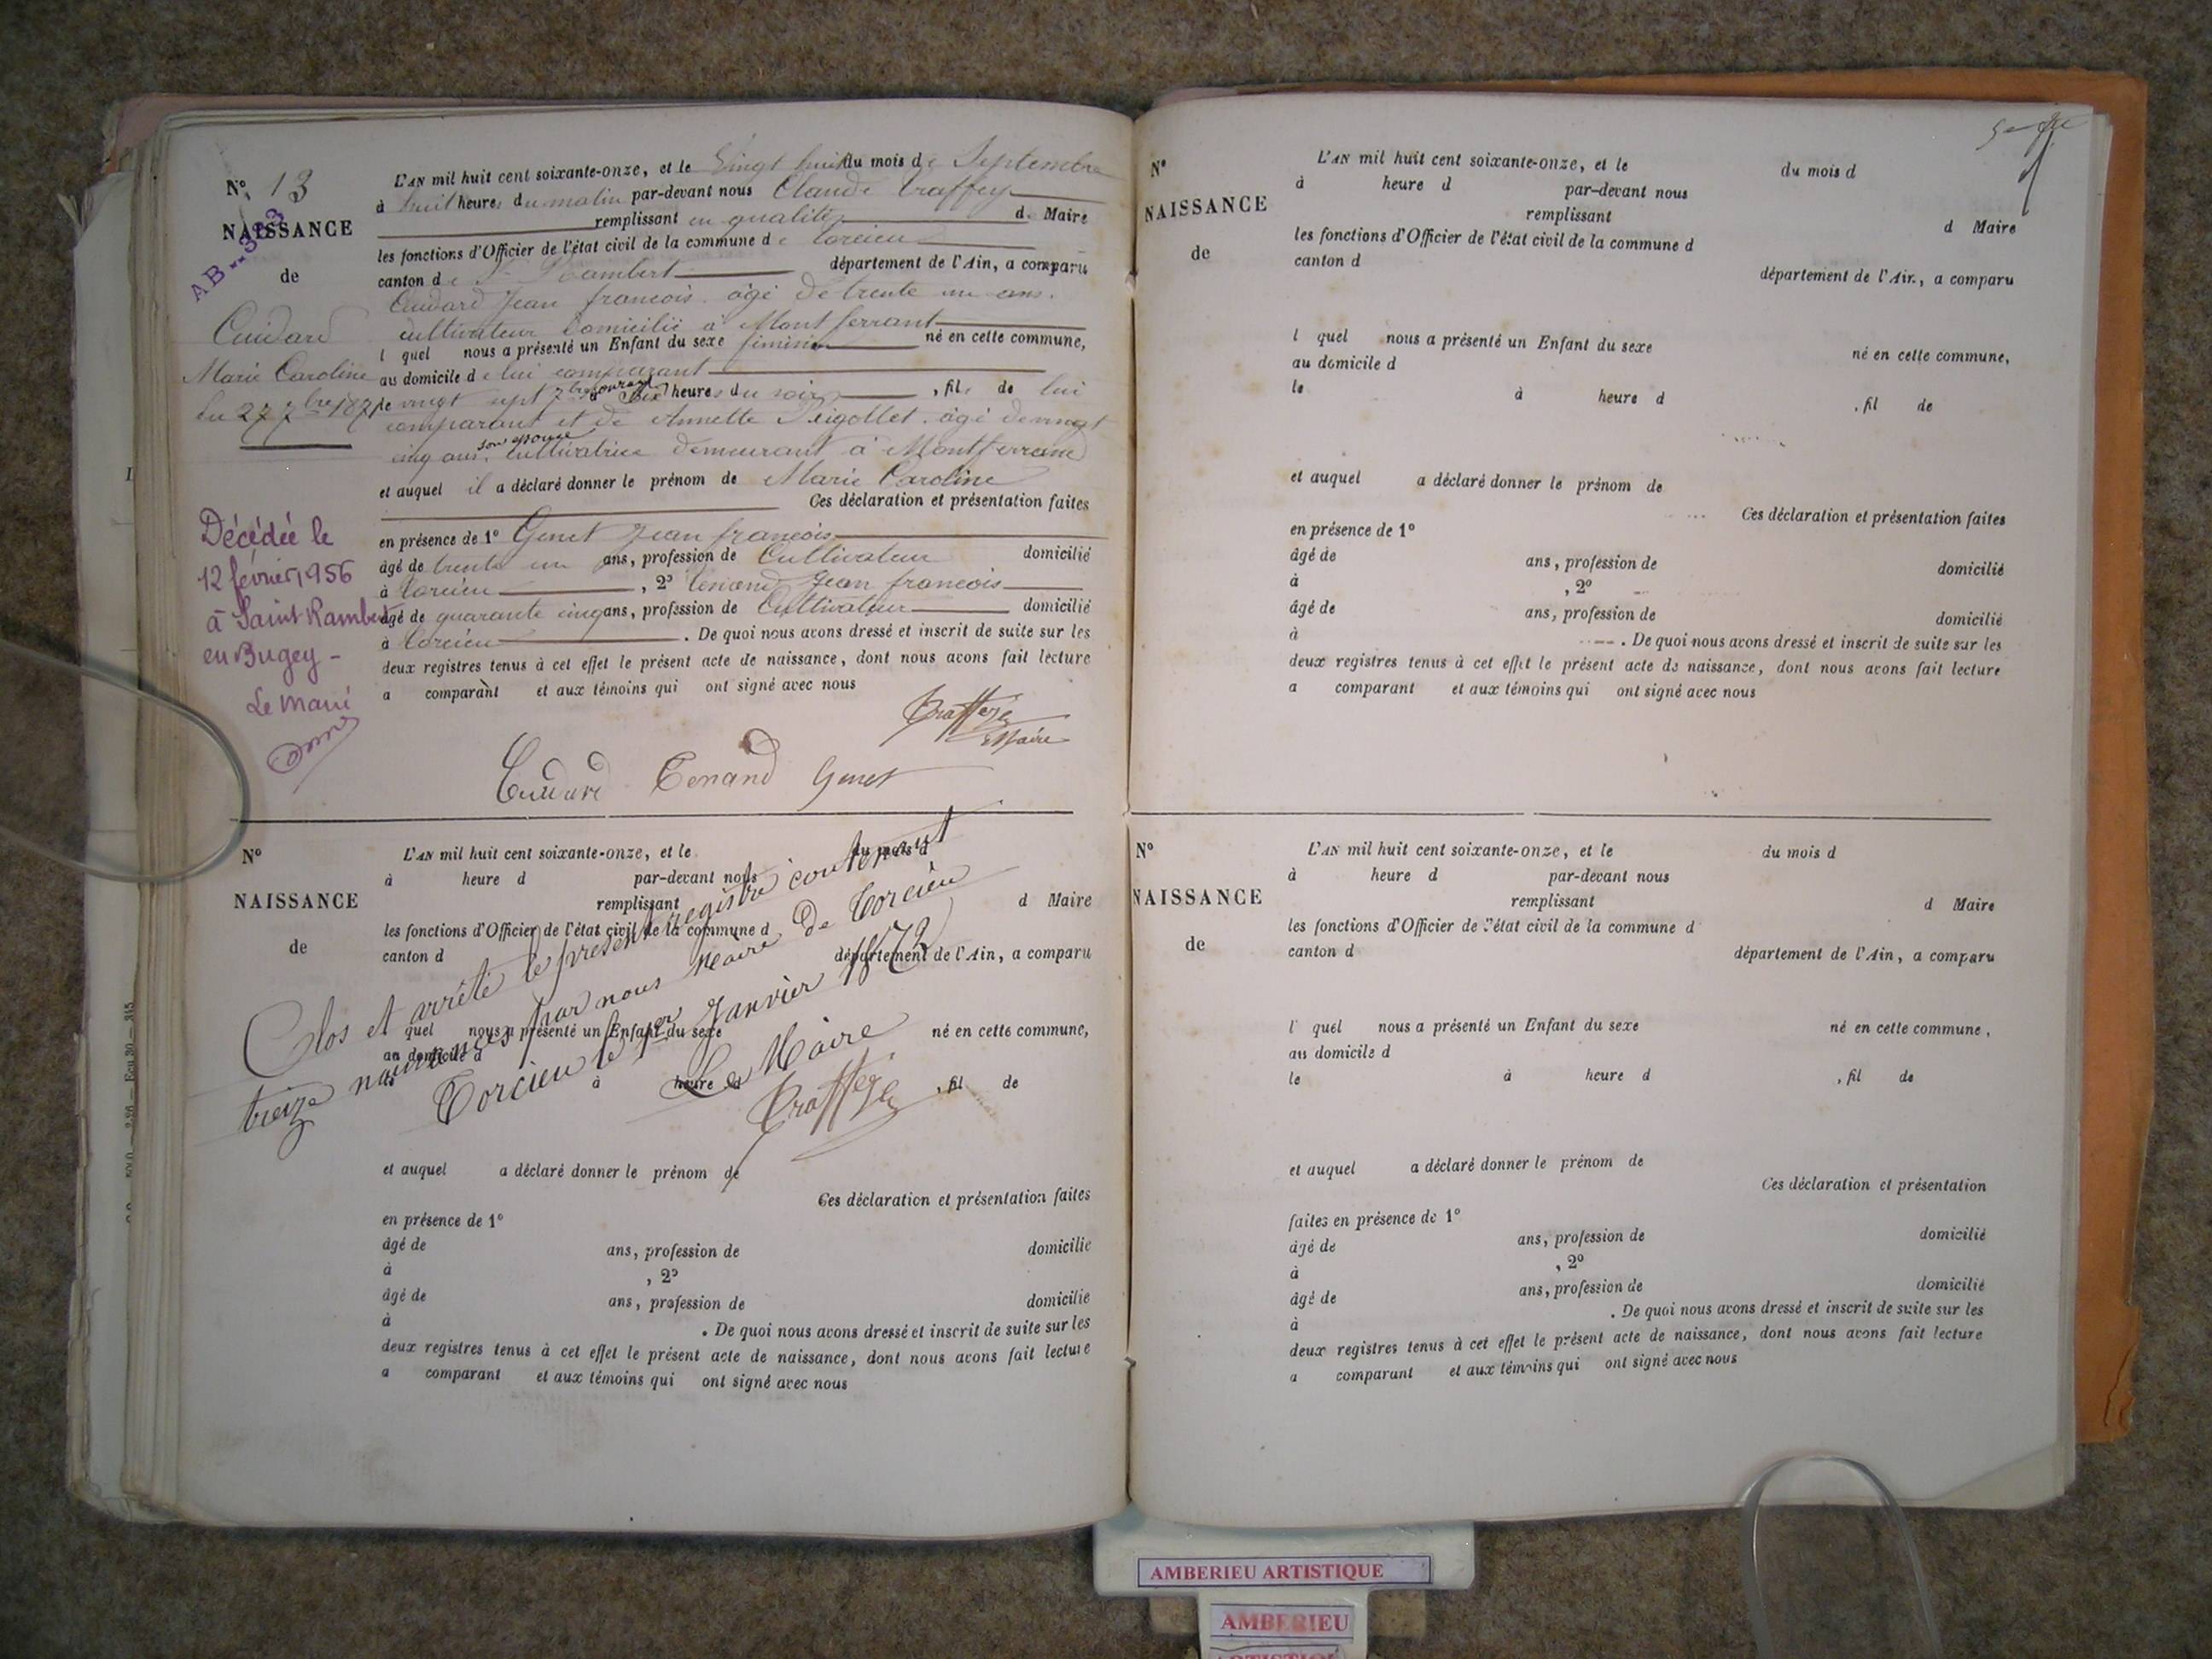 N° 13
NAISSANCE
AB--323
de
Cuidard
Marie Caroline
du 27 7bre 1871
Décédée le
12 février 1956
à Saint Rambert
en Bugey -
Le Maire
L'AN mil huit cent soixante-onze, et le Vingt huit du mois de Septembre
à huit heures du matin par-devant nous Claude Traffey
remplissant en qualité d. Maire
les fonctions d'Officier de l'état civil de la commune de Torcieu
canton de St Rambert département de l'Ain, a comparu
Cuidard Jean francois. âgé de trente un ans.
cultivateur domicilié à Montferrant
l quel nous a présenté un Enfant du sexe féminin né en cette commune,
au domicile de lui comparant
le vingt sept 7bre courant à Six heures du soir, fil de lui
comparant et de Annette Pigollet. âgé de vingt
cinq ans. son épouse Cultivatrice demeurant à Montferrand
et auquel il a déclaré donner le prénom de Marie Caroline
Ces déclaration et présentation faites
en présence de 1° Genet Jean francois
âgé de trente un ans, profession de Cultivateur domicilié
à Torcieu, 2° Tenand Jean francois
âgé de quarante cinq ans, profession de Cultivateur domicilié
à Torcieu. De quoi nous avons dressé et inscrit de suite sur les
deux registres tenus à cet effet le présent acte de naissance, dont nous avons fait lecture
a comparant et aux témoins qui ont signé avec nous
Traffey
Maire
Cuidard Tenand Genet
N°
NAISSANCE
de
L'AN mil huit cent soixante-onze, et le du mois d
à heure d par-devant nous
remplissant d Maire
les fonctions d'Officier de l'état civil de la commune d
canton d département de l'Ain, a comparu
quel nous a présenté un Enfant du sexe né en cette commune,
au domicile d
le à heure d, fil de
Clos et arrêté le présent registre contenant
treize naissances par nous Maire de Torcieu
Torcieu le 1er Janvier 1872
Le Maire
Traffey
et auquel a déclaré donner le prénom de
Ces déclaration et présentation faites
en présence de 1°
âgé de ans, profession de domicilié
à , 2°
âgé de ans, profession de domicilié
à . De quoi nous avons dressé et inscrit de suite sur les
deux registres tenus à cet effet le présent acte de naissance, dont nous avons fait lecture
a comparant et aux témoins qui ont signé avec nous
N°
NAISSANCE
de
L'AN mil huit cent soixante-onze, et le du mois d
à heure d par-devant nous
remplissant
d Maire
les fonctions d'Officier de l'état civil de la commune d
canton d
département de l'Ain, a comparu
l quel nous a présenté un Enfant du sexe né en cette commune,
au domicile d
le à heure d, fil de
et auquel a déclaré donner le prénom de
Ces déclaration et présentation faites
en présence de 1°
âgé de ans, profession de domicilié
à , 2°
âgé de ans, profession de domicilié
à . De quoi nous avons dressé et inscrit de suite sur les
deux registres tenus à cet effet le présent acte de naissance, dont nous avons fait lecture
a comparant et aux témoins qui ont signé avec nous
N°
NAISSANCE
de
L'AN mil huit cent soixante-onze, et le du mois d
à heure d par-devant nous
remplissant d Maire
les fonctions d'Officier de l'état civil de la commune d
canton d département de l'Ain, a comparu
l quel nous a présenté un Enfant du sexe né en cette commune,
au domicile d
le à heure d, fil de
et auquel a déclaré donner le prénom de
Ces déclaration et présentation
faites en présence de 1°
âgé de ans, profession de domicilié
à , 2°
âgé de ans, profession de domicilié
à . De quoi nous avons dressé et inscrit de suite sur les
deux registres tenus à cet effet le présent acte de naissance, dont nous avons fait lecture
a comparant et aux témoins qui ont signé avec nous
AMBERIEU ARTISTIQUE
AMBERIEU
ARTISTIQUE